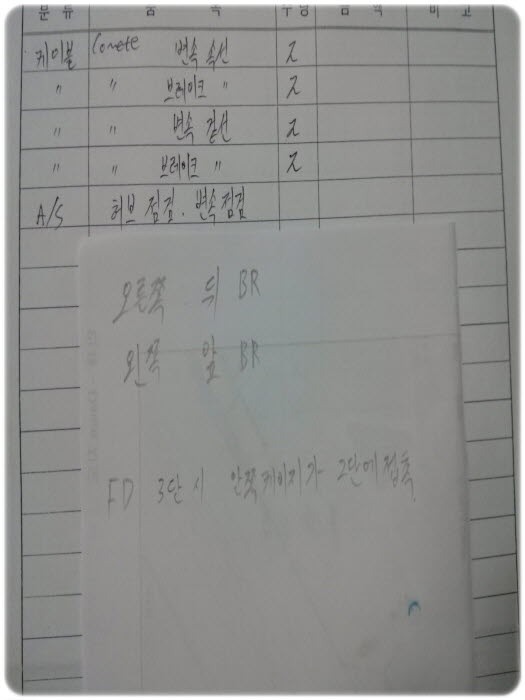 분 류 품 목 수량 금 액 비 고
케이블 변속 속선 2
〃 〃 브레이크 〃 2
〃 〃 변속 겉선 2
〃 〃 브레이크 〃 2
A/S 허브 점검. 변속 점검
오른쪽 뒤 BR
왼쪽 앞 BR
FD 3단시 안쪽케이지가 2단에 접촉